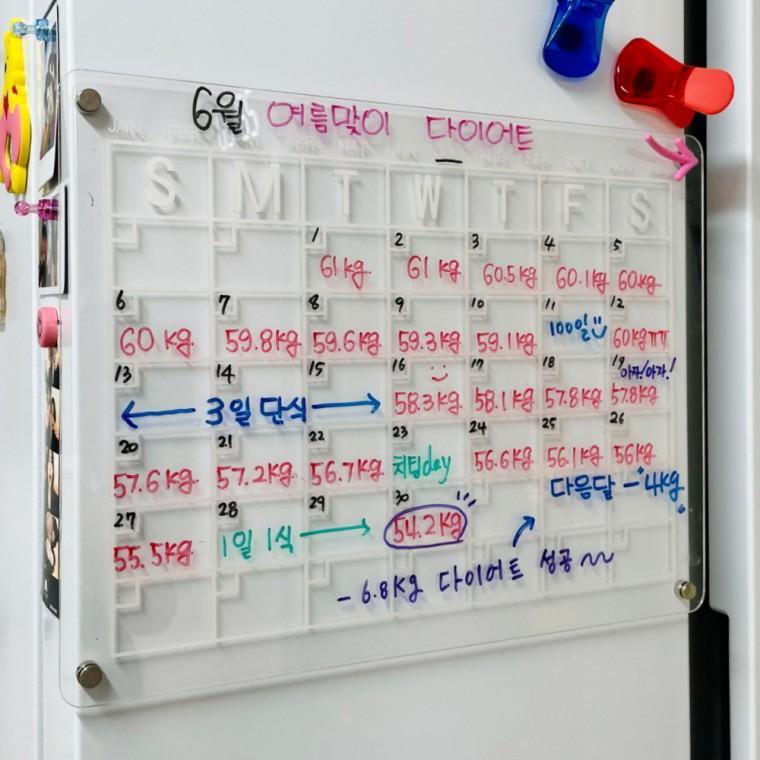 6월 여름맞이 다이어트
S M T W T F S
1 2 3 4 5
61kg 61kg 60.5kg 60.1kg 60kg
6 7 8 9 10 11 12
60kg 59.8kg 59.6kg 59.3kg 59.1kg 100일 60kgㅠㅠ
13 14 15 16 17 18 19
3일 단식 58.3kg 58.1kg 57.8kg 아자!아자! 57.8kg
20 21 22 23 24 25 26
57.6kg 57.2kg 56.7kg 치팅day 56.6kg 56.1kg 56kg
다음달 -4kg
27 28 29 30
55.5kg 1일 1식 54.2kg
-6.8kg 다이어트 성공~~